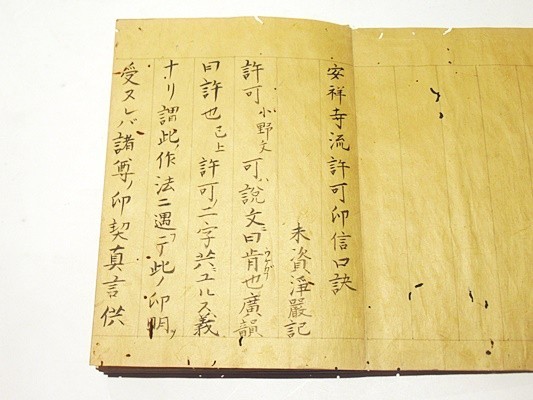 安祥寺流許可印信口訣
末資淨嚴記
許可小野文可ハ說文ニ曰肯也廣韻
曰許也已上許可ノ二字共ニユルス義
ナリ謂此ノ作法ニ遇テ此ノ印明ヲ
受スレバ諸尊ノ印契真言供